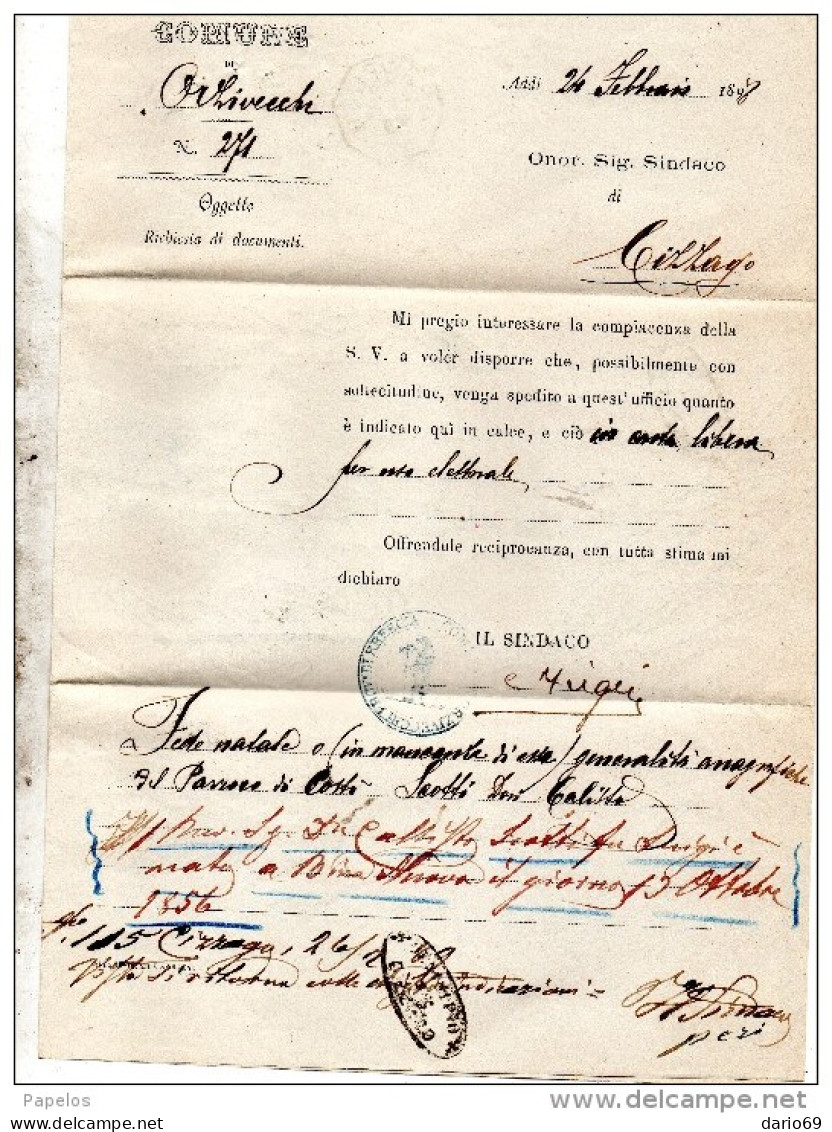 COMUNE
DI
Orzivecchi
N. 271
Oggetto
Richiesta di documenti.
Addì 24 Febbraio 189
Onor. Sig. Sindaco
di
Cizzago
Mi pregio interessare la compiacenza della
S. V. a voler disporre che, possibilmente con
sollecitudine, venga spedito a quest' ufficio quanto
è indicato quì in calce, e ciò in carta libera
per uso elettorale
Offrendole reciprocanza, con tutta stima mi
dichiaro
IL SINDACO
Fede natale o (in mancante di essa) generalità anagrafiche
del Parroco di costì Scotti Don Calisto
Il Rev. Sg. Dn Callisto Scotti fu Luigi è
nato a Bina Nuova il giorno 13 Ottobre
1856
115 Cizzago, 26/2
Visto si ritorna colle indicazioni =
Il Sindaco
Papelos
delcampe.net
dario69